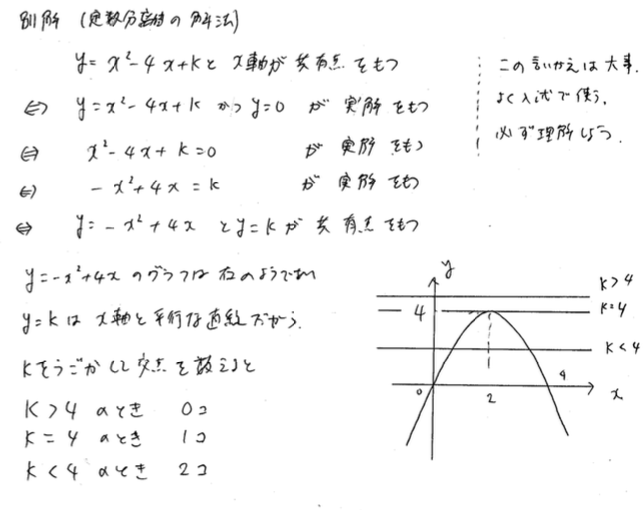 別解 (定数分離の解法)
y=x²-4x+kと x軸が 共有点をもつ
⇔ y=x²-4x+k かつ y=0 が 実解をもつ
⇔ x²-4x+k=0 が 実解をもつ
⇔ -x²+4x=k が 実解をもつ
⇔ y=-x²+4x と y=k が 共有点をもつ
この言いかえは大事.
よく入試で使う.
必ず理解しよう.
y=-x²+4x のグラフは右のようであり
y=k は x軸と平行な直線だから.
kをうごかして交点を数えると
k>4 のとき 0コ
k=4 のとき 1コ
k<4 のとき 2コ
y
k>4
4
k=4
k<4
0
2
4
x